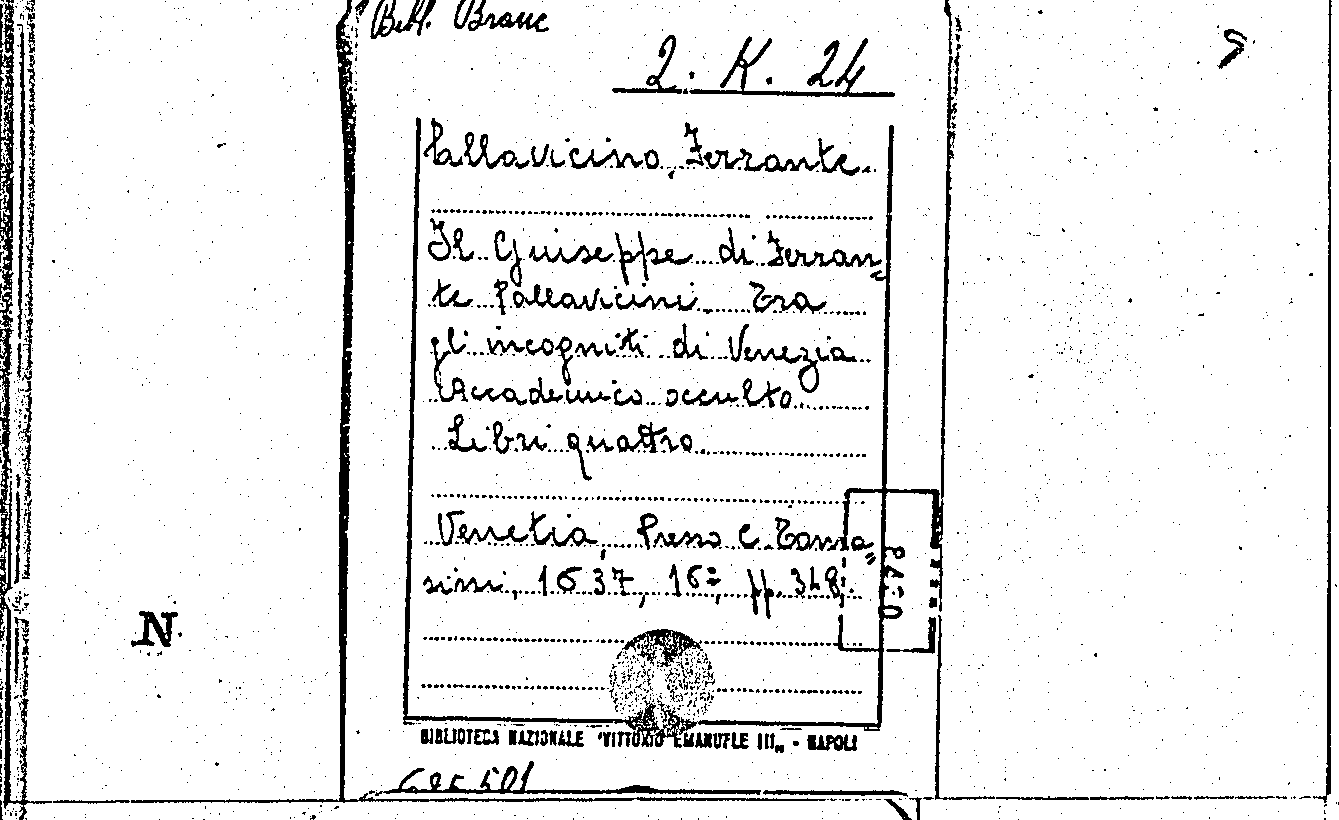 Bibl. Branc
2. K. 24
Pallavicino, Ferrante.
Il Giuseppe di Ferran=
te Pallavicini. Tra
gli incogniti di Venezia
Accademico occulto.
Libri quattro.
Venetia, Presso C. Toma"
sini, 1637, 16°, pp. 348.
N
BIBLIOTECA NAZIONALE "VITTORIO EMANUELE III„ - NAPOLI
501